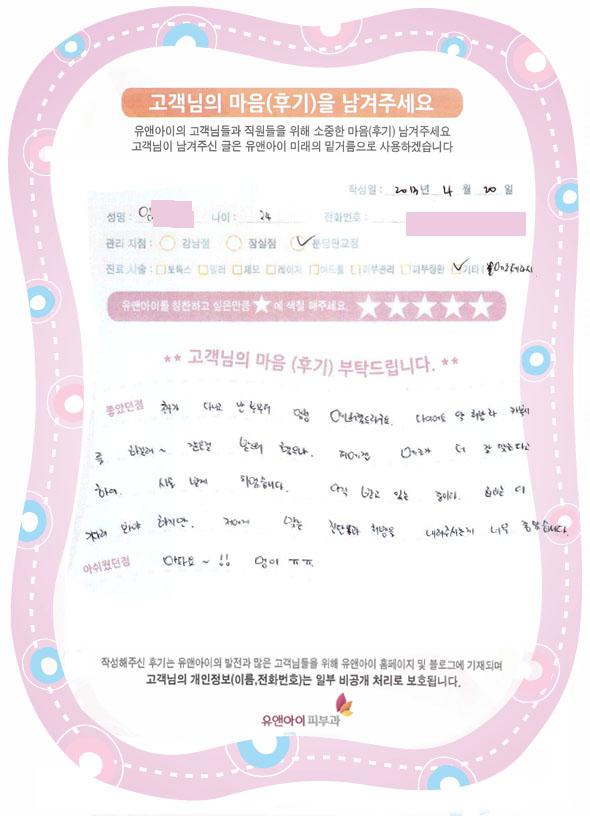 고객님의 마음(후기)을 남겨주세요
유앤아이의 고객님들과 직원들을 위해 소중한 마음(후기) 남겨주세요
고객님이 남겨주신 글은 유앤아이 미래의 밑거름으로 사용하겠습니다
작성일 : 2013년 4월 20일
성명 : 나이 : 24 전화번호 :
관리 지점 : 강남점 잠실점 분당판교점
진료/시술 : 보톡스 필러 제모 레이저 여드름 피부관리 피부질환 기타 (
유앤아이를 칭찬하고 싶은만큼 ★ 에 색칠 해주세요. ★★★★★
** 고객님의 마음 (후기) 부탁드립니다. **
좋았던점 친구가 다니고 난 후부터
를
하여. 시도 받게 되었습니다. 아직 받고 있는 중이라.
봐야 하지만. 저에게 맞는 진단과 처방을 내려주시는게 너무 좋았습니다.
아쉬웠던점 아파요~!! 멍이 ㅠㅠ
작성해주신 후기는 유앤아이의 발전과 많은 고객님들을 위해 유앤아이 홈페이지 및 블로그에 기재되며
고객님의 개인정보(이름,전화번호)는 일부 비공개 처리로 보호됩니다.
유앤아이피부과